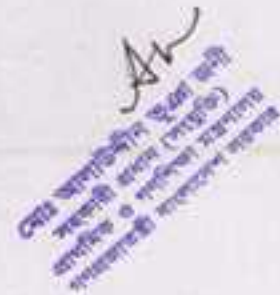 মোঃ আলাউদ্দিন ভূঞা জনী
সহকারী প্রধান (সংযুক্তি)
প্রাথমিক ও গণশিক্ষা মন্ত্রণালয়
গণপ্রজাতন্ত্রী বাংলাদেশ সরকার